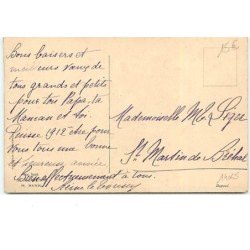 Bons baisers et
meilleurs vœux de
tous grands et petits
pour ton Papa, ta
Maman et toi.
Puisse 1912 être pour
vous tous une bonne
et heureuse année
Bien affectueusement à tous.
Mademoiselle M.
St Martin de